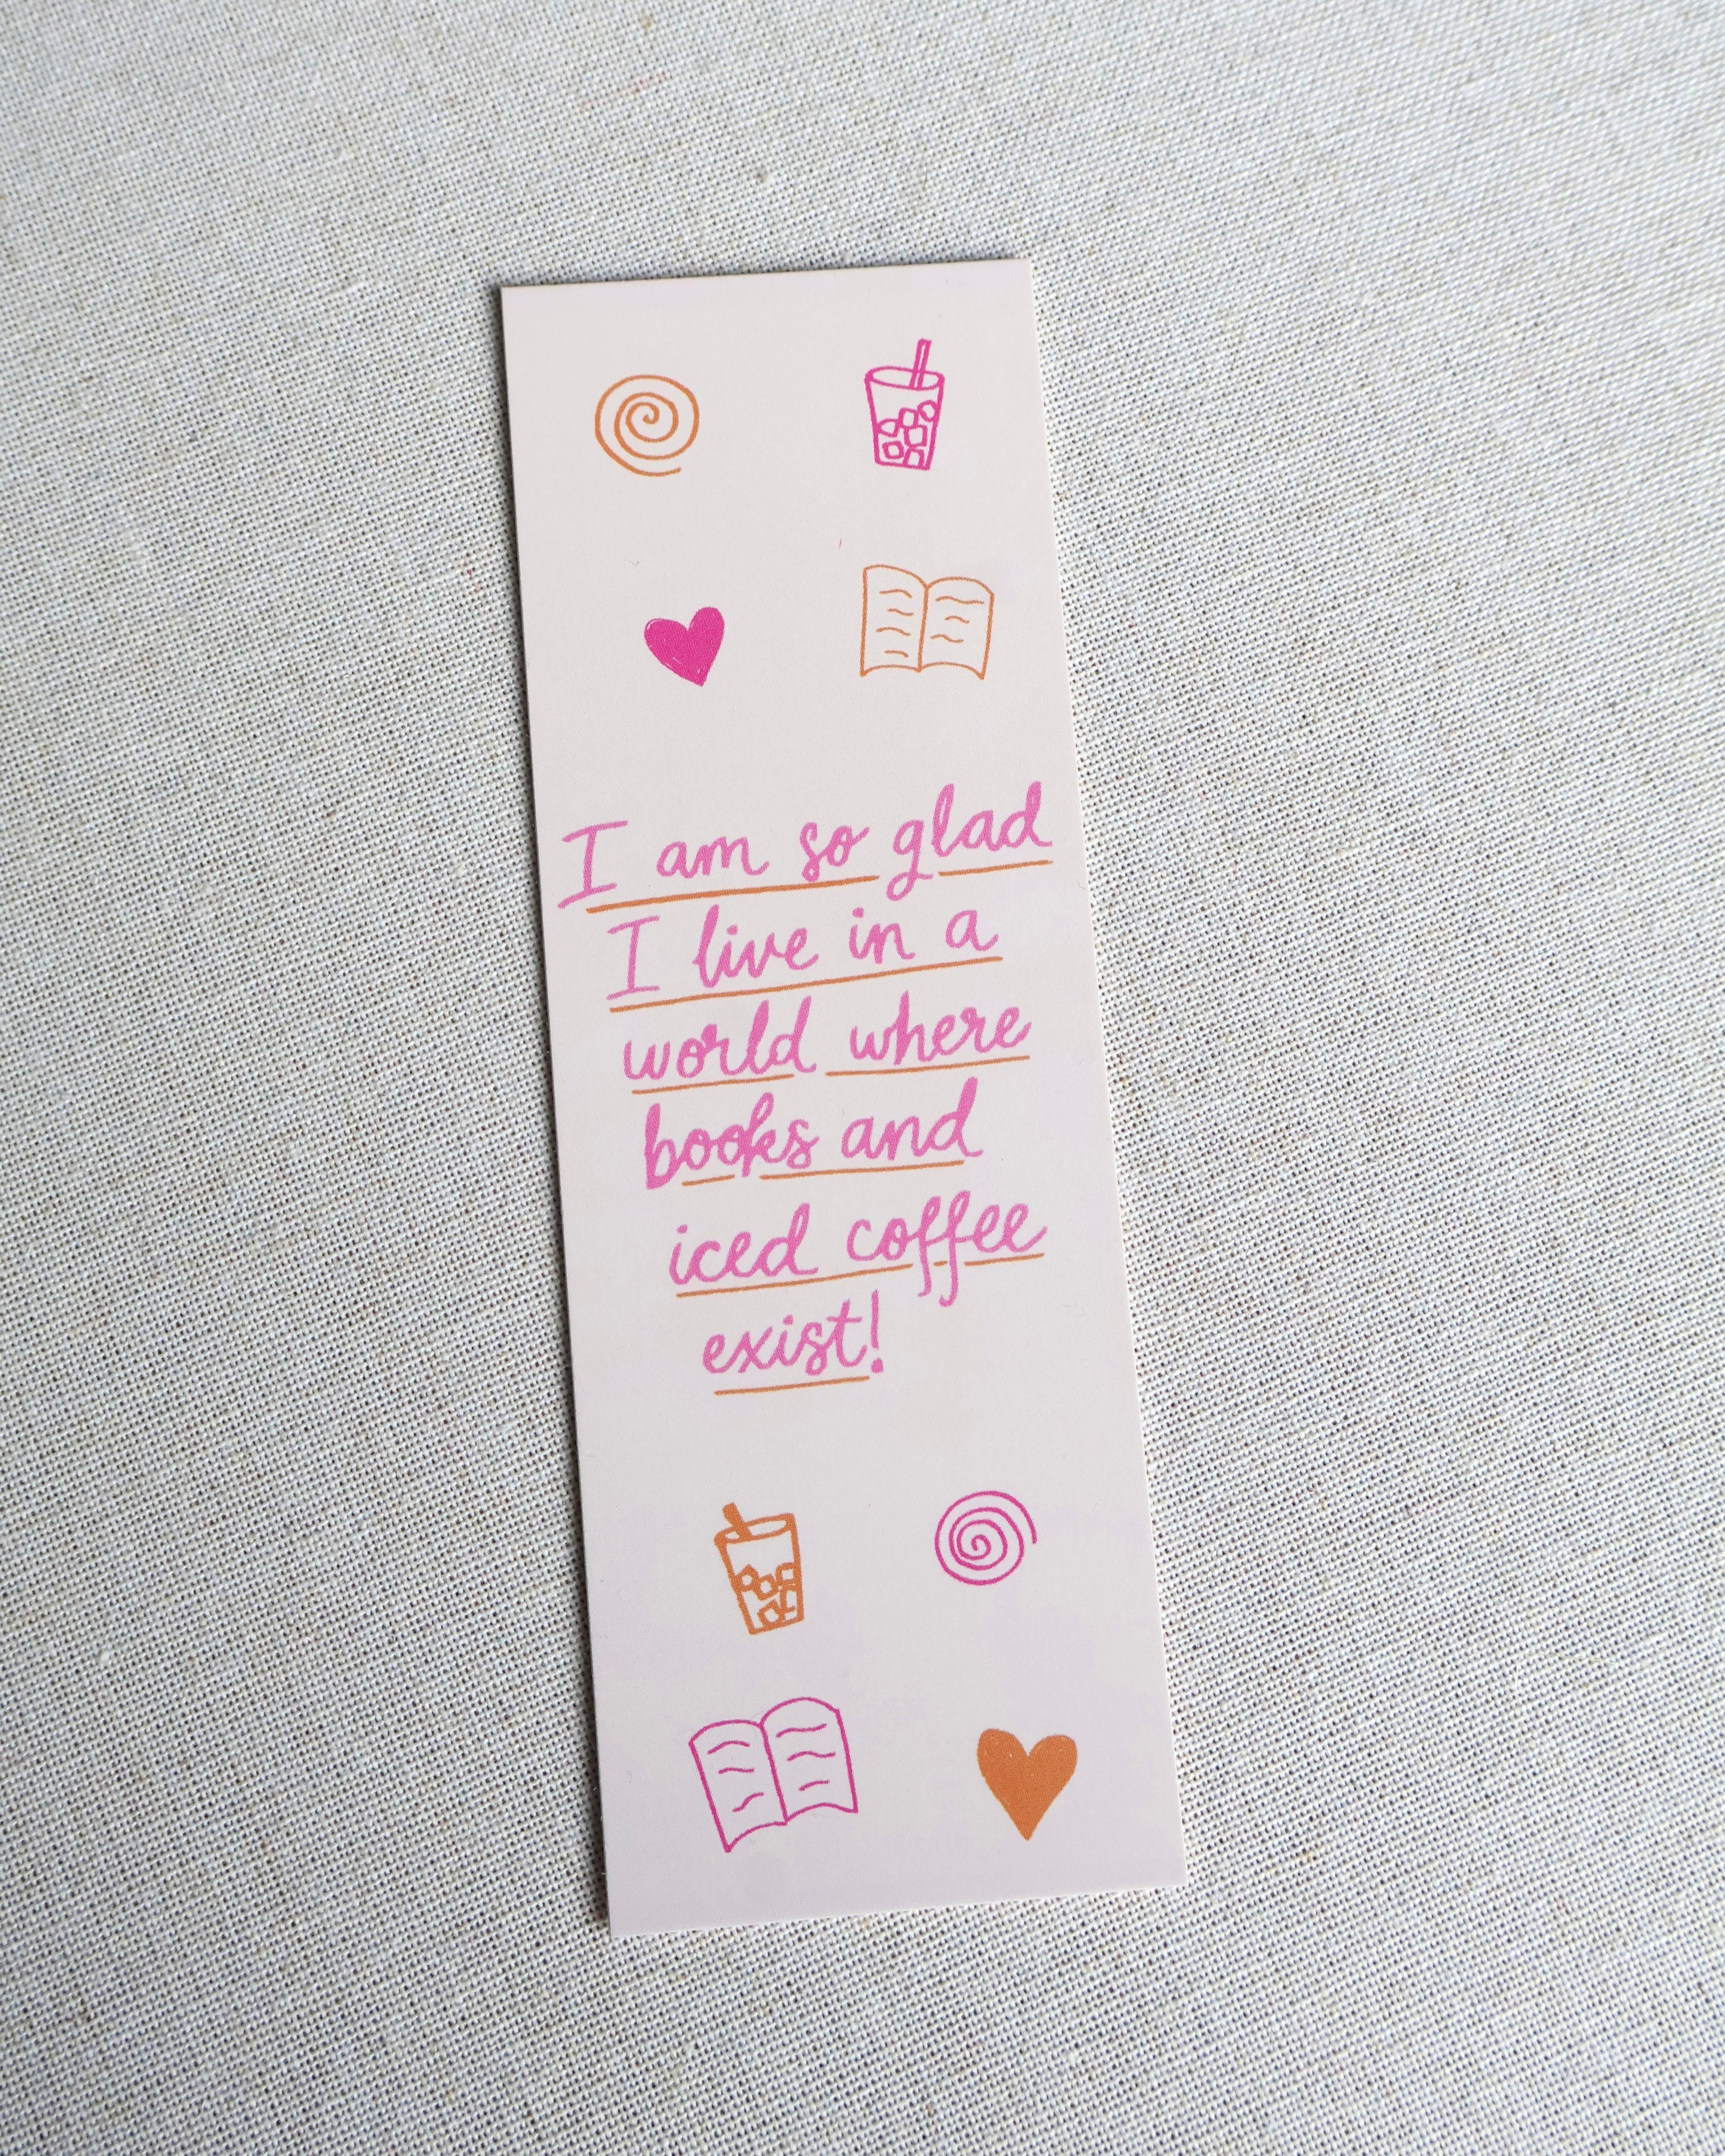 I am so glad
I live in a
world where
books and
iced coffee
exist!